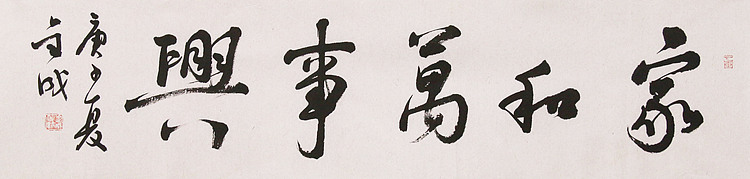 家和萬事興
庚子夏